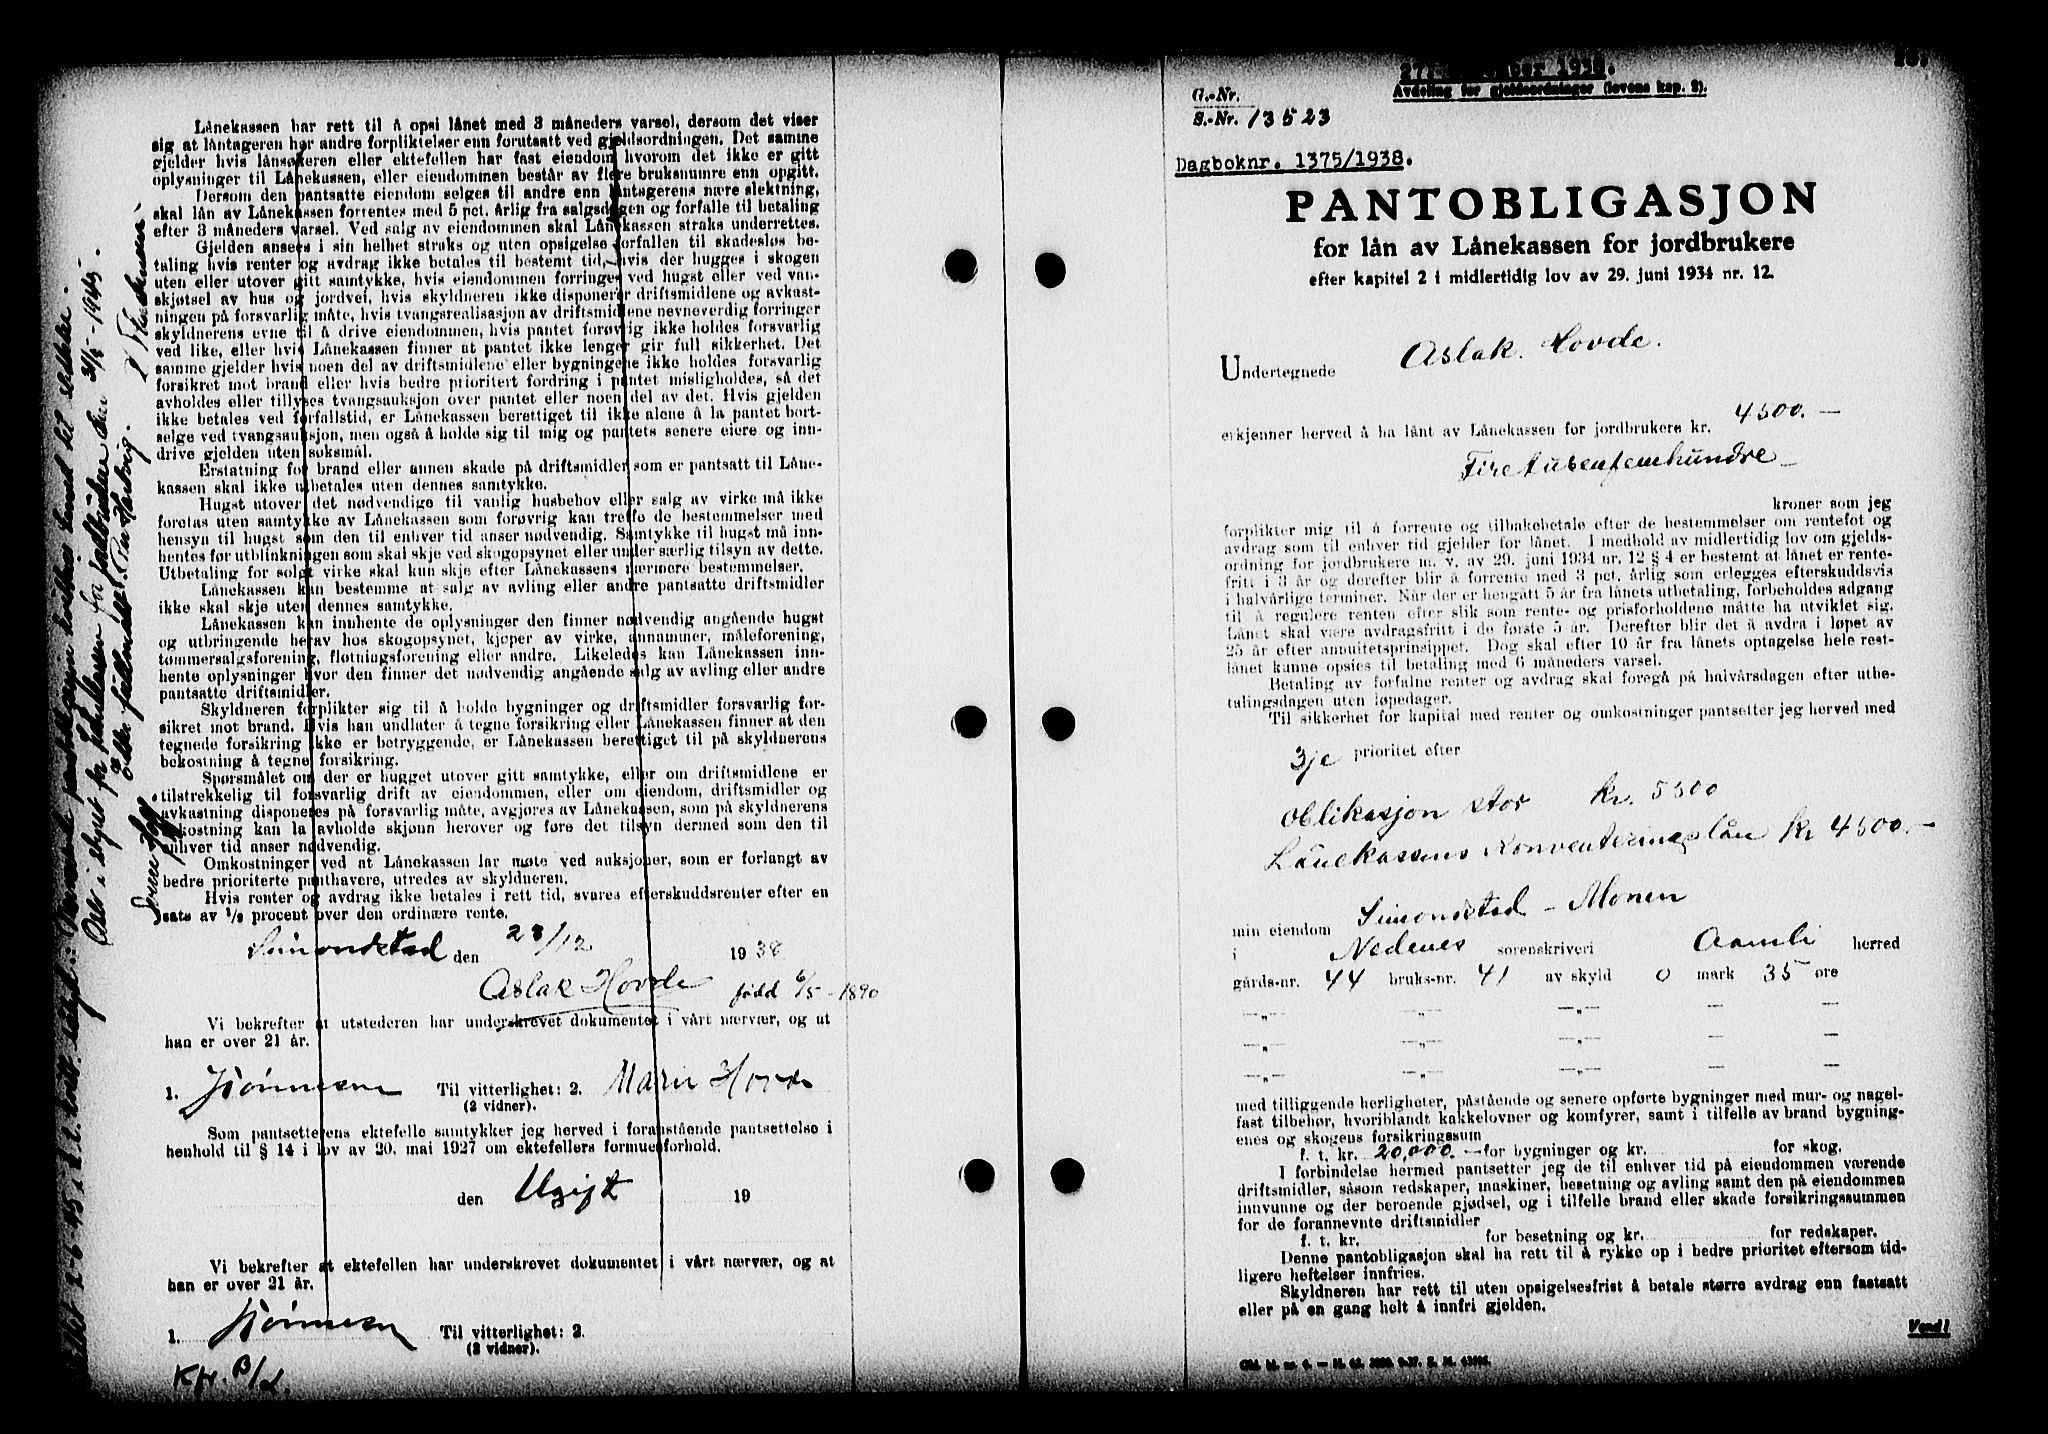 Lånekassen har rett til å opsi lånet med 3 måneders varsel, dersom det viser
sig at låntageren har andre forpliktelser enn forutsatt ved gjeldsordningen. Det samme
gjelder hvis lånsøkeren eller ektefellen har fast eiendom hvorom det ikke er gitt
oplysninger til Lånekassen, eller eiendommen består av flere bruksnumre enn opgitt.
Dersom den pantsatte eiendom selges til andre enn låntagerens nære slektning,
skal lån av Lånekassen forrentes med 5 pct. årlig fra salgsdagen og forfalle til betaling
efter 3 måneders varsel. Ved salg av eiendommen skal Lånekassen straks underrettes.
Gjelden ansees i sin helhet straks og uten opsigelse forfallen til skadesløs be-
taling hvis renter og avdrag ikke betales til bestemt tid, hvis der hugges i skogen
uten eller utover gitt samtykke, hvis eiendommen forringes ved hugst eller ved van-
skjøtsel av hus og jordvei, hvis skyldneren ikke disponerer driftsmidlene og avkast-
ningen på forsvarlig måte, hvis tvangsrealisasjon av driftsmidlene nevneverdig forringer
skyldnerens evne til å drive eiendommen, hvis pantet forøvrig ikke holdes forsvarlig
ved like, eller hvis Lånekassen finner at pantet ikke lenger gir full sikkerhet. Det
samme gjelder hvis noen del av driftsmidlene eller bygningene ikke holdes forsvarlig
forsikret mot brand eller hvis bedre prioritert fordring i pantet misligholdes, så det
avholdes eller tillyses tvangsauksjon over pantet eller noen del av det. Hvis gjelden
ikke betales ved forfallstid, er Lånekassen berettiget til ikke alene å la pantet bort-
selge ved tvangsauksjon, men også å holde sig til mig og pantets senere eiere og inn-
drive gjelden uten søksmål.
Erstatning for brand eller annen skade på driftsmidler som er pantsatt til Låne-
kassen skal ikke utbetales uten dennes samtykke.
Hugst utover det nødvendige til vanlig husbehov eller salg av virke må ikke
foretas uten samtykke av Lånekassen som forøvrig kan treffe de bestemmelser med
hensyn til hugst som den til enhver tid anser nødvendig. Samtykke til hugst må inn-
hentes før utblinkningen som skal skje ved skogopsynet eller under særlig tilsyn av dette.
Utbetaling for solgt virke skal kun skje efter Lånekassens nærmere bestemmelser.
Lånekassen kan bestemme at salg av avling eller andre pantsatte driftsmidler
ikke skal skje uten dennes samtykke.
Lånekassen kan innhente de oplysninger den finner nødvendig angående hugst
og utbringende herav hos skogopsynet, kjøper av virke, annammer, måleforening,
tømmersalgsforening, fløtningsforening eller andre. Likeledes kan Lånekassen inn-
hente oplysninger hvor den finner det nødvendig angående salg av avling eller andre
pantsatte driftsmidler.
Skyldneren forplikter sig til å holde bygninger og driftsmidler forsvarlig for-
sikret mot brand. Hvis han undlater å tegne forsikring eller Lånekassen finner at den
tegnede forsikring ikke er betryggende, er Lånekassen berettiget til på skyldnerens
bekostning å tegne forsikring.
Spørsmålet om der er hugget utover gitt samtykke, eller om driftsmidlene er
tilstrekkelig til forsvarlig drift av eiendommen, eller om eiendom, driftsmidler og
avkastning disponeres på forsvarlig måte, avgjøres av Lånekassen, som på skyldnerens
bekostning kan la avholde skjønn herover og føre det tilsyn dermed som den til
enhver tid anser nødvendig.
Omkostninger ved at Lånekassen lar møte ved auksjoner, som er forlangt av
bedre prioriterte panthavere, utredes av skyldneren.
Hvis renter og avdrag ikke betales i rett tid, svares efterskuddsrenter efter en
sats av 1/2 procent over den ordinære rente.
Simondstad den 23/12 1938
Aslak Hovde født 6/5-1890
Vi bekrefter at utstederen har underskrevet dokumentet i vårt nærvær, og at
han er over 21 år.
1. Til vitterlighet: 2. Marie Hovde
(2 vidner).
Som pantsetterens ektefelle samtykker jeg herved i foranstående pantsettelse i
henhold til § 14 i lov av 20. mai 1927 om ektefellers formuesforhold.
den Ugift 19
Vi bekrefter at ektefellen har underskrevet dokumentet i vårt nærvær, og at
han er over 21 år.
1. Til vitterlighet: 2.
(2 vidner).
1938.
Avdeling for gjeldsordninger (lovens kap. 2).
G.-Nr.
S.-Nr. 13523
Dagboknr. 1375/1938.
PANTOBLIGASJON
for lån av Lånekassen for jordbrukere
efter kapitel 2 i midlertidig lov av 29. juni 1934 nr. 12.
Undertegnede Aslak Hovde.
erkjenner herved å ha lånt av Lånekassen for jordbrukere kr. 4500.—
Firetusenfemhundre
kroner som jeg
forplikter mig til å forrente og tilbakebetale efter de bestemmelser om rentefot og
avdrag som til enhver tid gjelder for lånet. I medhold av midlertidig lov om gjelds-
ordning for jordbrukere m. v. av 29. juni 1934 nr. 12 § 4 er bestemt at lånet er rente-
fritt i 3 år og derefter blir å forrente med 3 pct. årlig som erlegges efterskuddsvis
i halvårlige terminer. Når der er hengått 5 år fra lånets utbetaling, forbeholdes adgang
til å regulere renten efter slik som rente- og prisforholdene måtte ha utviklet sig.
Lånet skal være avdragsfritt i de første 5 år. Derefter blir det å avdra i løpet av
25 år efter annuitetsprinsippet. Dog skal efter 10 år fra lånets optagelse hele rest-
lånet kunne opsies til betaling med 6 måneders varsel.
Betaling av forfalne renter og avdrag skal foregå på halvårsdagen efter utbe-
talingsdagen uten løpedager.
Til sikkerhet for kapital med renter og omkostninger pantsetter jeg herved med
3je prioritet efter
oblikasjon stor kr. 5500
Lånekassens Konverteringslån kr 4500.—
min eiendom Simondstad - Monen
i Nedenes sorenskriveri Aamli herred
gårds-nr. 44 bruks-nr. 41 av skyld 0 mark 35 øre
—„— —„— —„— — —
—„— —„— —„— — —
—„— —„— —„— — —
med tilliggende herligheter, påstående og senere opførte bygninger med mur- og nagel-
fast tilbehør, hvoriblandt kakkelovner og komfyrer, samt i tilfelle av brand bygning-
enes og skogens forsikringssum
f. t. kr. 20,000.— for bygninger og kr. for skog.
I forbindelse hermed pantsetter jeg de til enhver tid på eiendommen værende
driftsmidler, såsom redskaper, maskiner, besetning og avling samt den på eiendommen
innvunne og der beroende gjødsel, og i tilfelle brand eller skade forsikringssummen
for de forannevnte driftsmidler
f. t. kr. for besetning og kr. for redskaper.
Denne pantobligasjon skal ha rett til å rykke op i bedre prioritet eftersom tid-
ligere heftelser innfries.
Skyldneren har rett til uten opsigelsesfrist å betale større avdrag enn fastsatt
eller på en gang helt å innfri gjelden.
Vend!